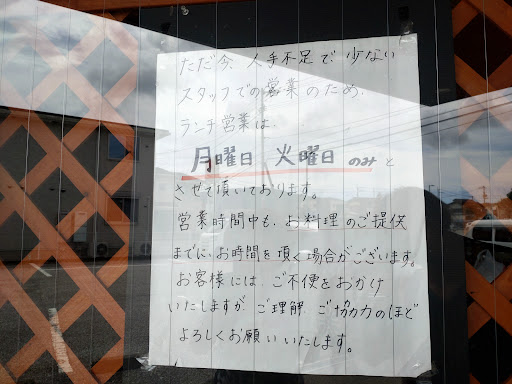 ただ今、人手不足で少ない
スタッフでの営業のため、
ランチ営業は、
月曜日 火曜日 のみと
させて頂いております。
営業時間中も、お料理のご提供
までに、お時間を頂く場合がございます。
お客様には、ご不便をおかけ
いたしますが、ご理解、ご協力のほど
よろしくお願いいたします。